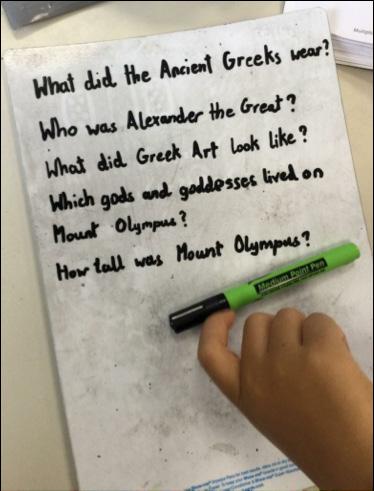 What did the Ancient Greeks wear?
Who was Alexander the Great?
What did Greek Art look like?
Which gods and goddesses lived on
Mount Olympus?
How tall was Mount Olympus?
Medium Point Pen